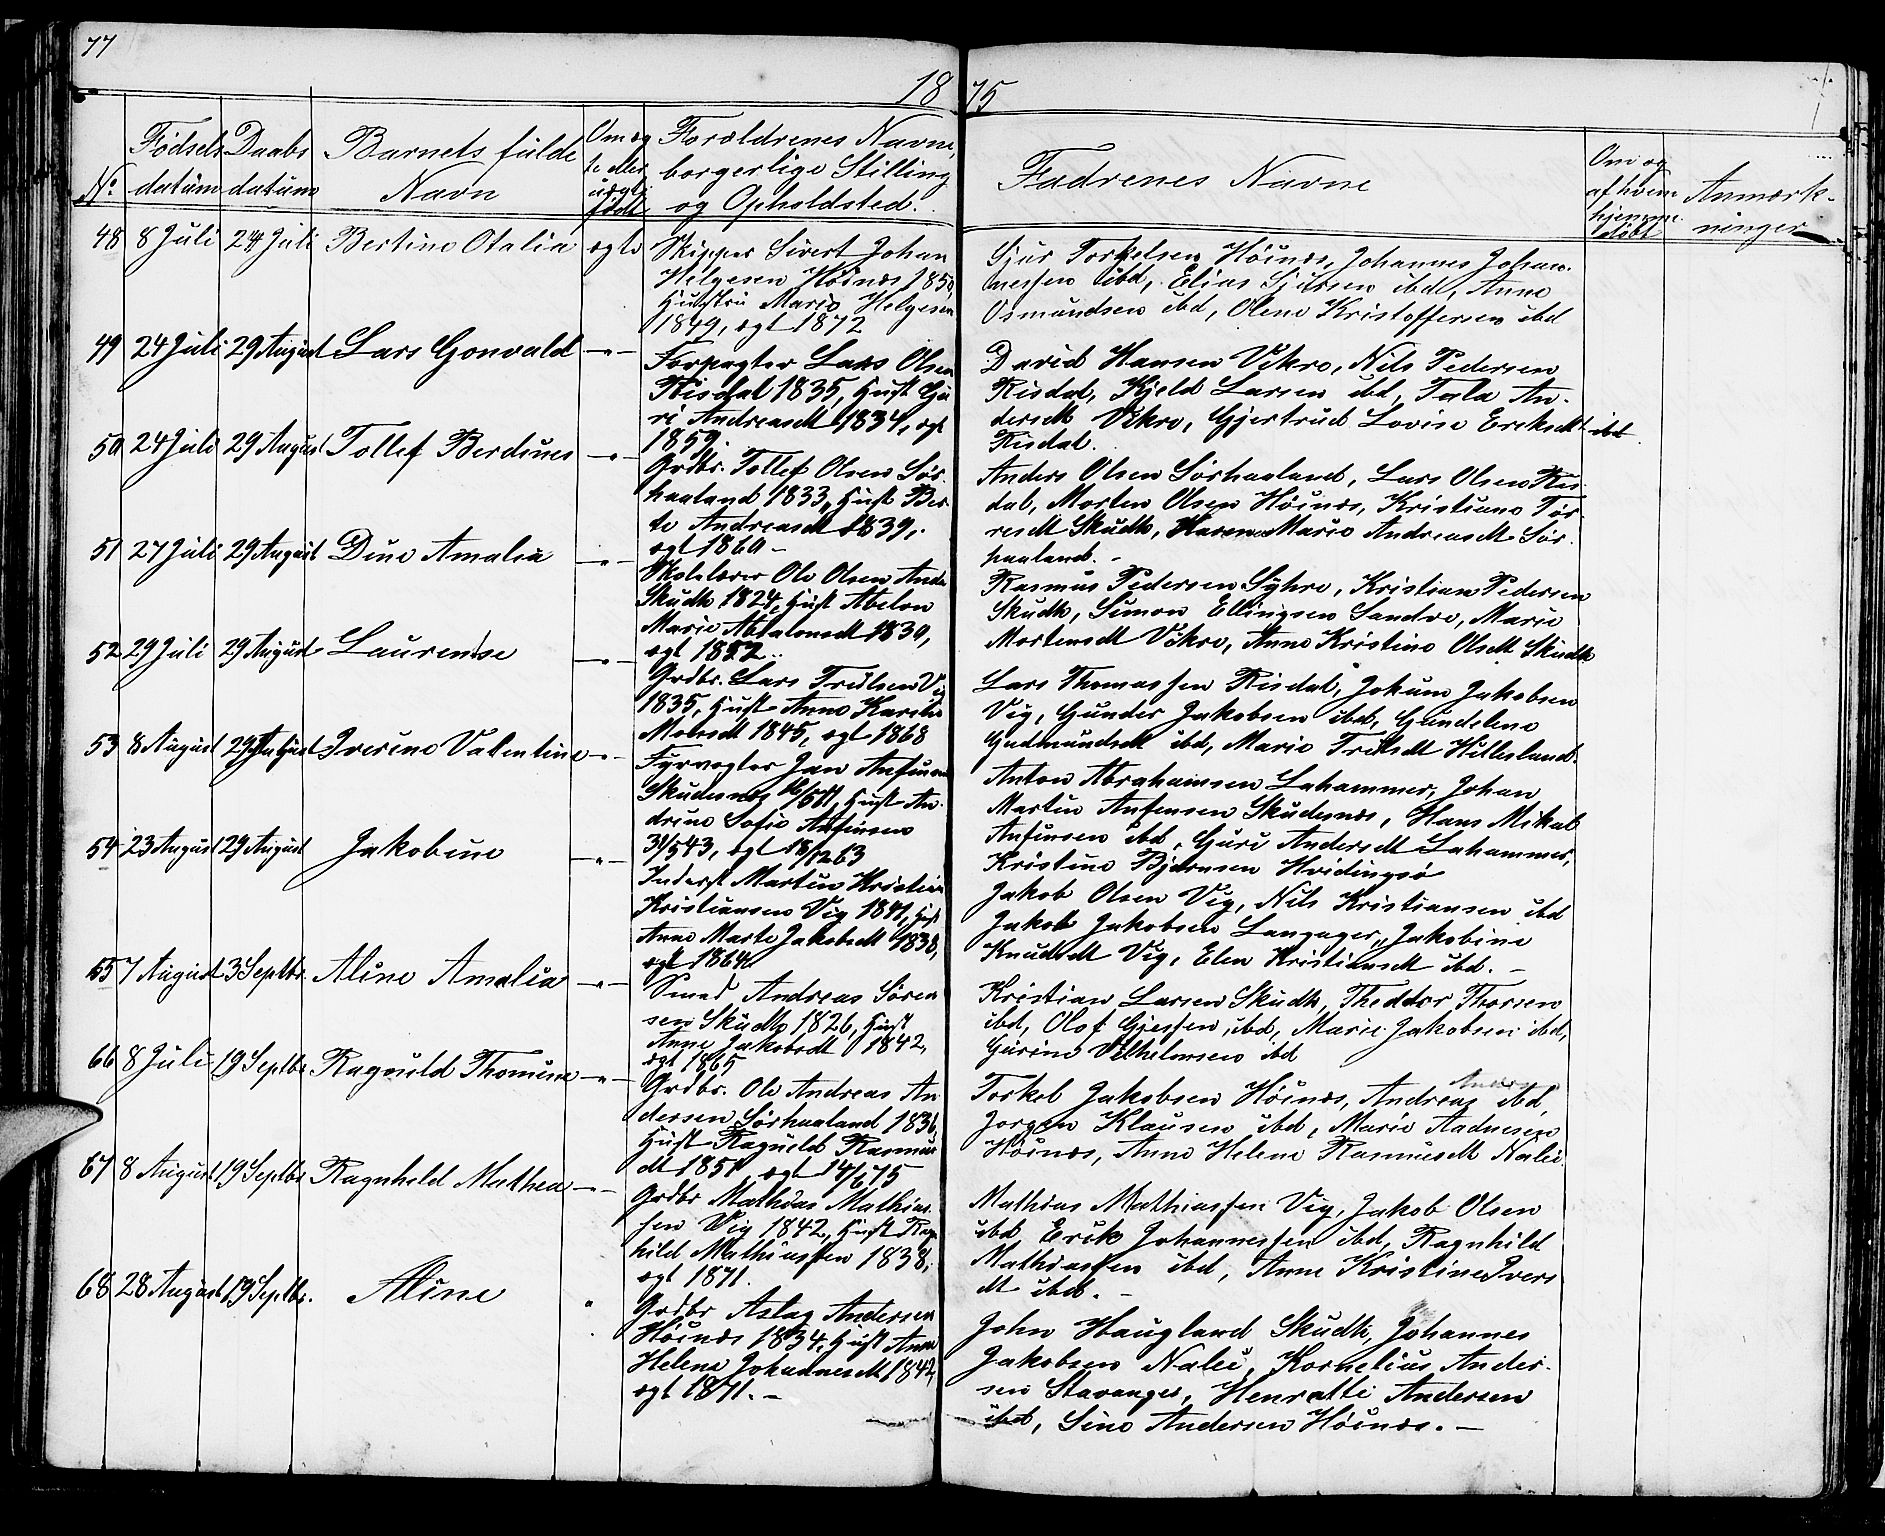 77
1875
No
Fødsels datum
Daabs datum
Barnets fulde Navn
Om æg te eller uægte født
Forældrenes Navne, borgerlige Stilling og Opholdsted.
Fadrenes Navne
Om og af hvem hjemme døbt
Anmærk- ninger
48 8 Juli 24 Juli Bertine Otalia ægte
Skipper Sivert Johan
Helgesen Høinæs 1850,
Hustru Marie Helgesen
1849, ægt 1872
Sjur Torkelsen Høinæs, Johannes Johan-
nessen ibd, Elias Sjursen ibd, Anne
Osmundsen ibd, Olene Kristoffersen ibd
49 24 Juli 29 August Lars Gonvald -"-
Forpagter Lars Olsen
Risdal 1835, Hust Gu
ri Andreasdt 1834, ægt
1859.
David Hansen Vikre, Nils Pedersen
Risdal, Kjeld Larsen ibd, Tala An-
dersdt Vikre, Gjertrud Lovise Eriksdt ibd
Risdal.
50 24 Juli 29 August Tollef Berdines -"-
Grdbr. Tollef Olsen Sør-
haaland 1833, Hust Ber-
te Andreasdt 1839,
ægt 1860 -
Anders Olsen Sørhaaland, Lars Olsen Ris-
dal, Morten Olsen Høinæs, Kristiane Tor-
resdt Skudh, Karen Marie Andreasdt Sør-
haaland. -
51 27 Juli 29 August Dine Amalia -"-
Skolelærer Ole Olsen Ande
Skudh 1824, Hust Abelon
Marie Absalonsdt 1830,
ægt 1852..
Rasmus Pedersen Syhre, Kristian Pedersen
Skudh, Simon Ellingsen Sandve, Marie
Mortensdt Vikre, Anne Kristine Olsdt Skudh
52 29 Juli 29 August Laurense -"-
Grdbr. Lars Trulsen Vig
1835, Hust Anne Karine
Molsdt 1845, ægt 1868
Lars Thomassen Risdal, Jokum Jakobsen
Vig, Gunder Jakobsen ibd, Gundelene
Gudmundsdt ibd, Marie Trulsdt Hillesland.
53 8 August 29 August Iverine Valentine -"-
Fyrvogter Jan Anfinsen
Skudesnæs 16/5 11, Hust An-
drine Sofie Anfinsen
31/5 43, ægt 18/12 63
Anton Abrahamsen Lahammer, Johan
Martin Anfensen Skudesnæs, Hans Mikal
Anfinsen ibd, Guri Andersdt Lahammer,
Kristine Bjørnsen Hvidingsø
54 23 August 29 August Jakobine -"-
Inderst Martin Kristian
Kristiansen Vig 1841, Hust
Anne Marte Jakobsdt 1838,
ægt 1864
Jakob Olsen Vig, Nils Kristiansen ibd
Jakob Jakobsen Langager, Jakobine
Knudsdt Vig, Elen Kristiansdt ibd. -
65 7 August 3 Septbr. Aline Amalia -"-
Smed Andreas Søren
sen Skudh 1826, Hust
Anne Jakobsdt 1842,
ægt 1865
Kristian Larsen Skudh, Theodor Thorsen
ibd, Olof Gjessen, ibd, Marie Jakobsen ibd,
Gurine Vilhelmsen ibd
66 8 Juli 19 Septbr Ragnild Thomine -"-
Grdbr. Ole Andreas An
dersen Sørhaaland 1836,
Hust Ragnild Rasmus
dt 1851 ægt 14/6 75
Torkel Jakobsen Høinæs, Andreas ibd,
Jorgen Klausen ibd, Marie Aadnesen
Høinæs, Anne Helene Rasmusdt Nalei
67 8 August 19 Septbr Ragnhild Mathea -"-
Grdbr Mathias Mathias-
sen Vig 1842, Hust Rag
hild Mathiassen 1838,
ægt 1871.
Mathias Mathiassen Vig, Jakob Olsen
ibd, Erik Johannessen ibd, Ragnhild
Mathiassen ibd, Anne Kristine Ivers
dt ibd. -
68 28 August 19 Septbr. Aline "
Grdbr Aslag Andersen
Høinæs 1834, Hust Anne
Helene Johannesdt 1842,
ægt 1871. -
John Haugland Skudh, Johannes
Jakobsen Nalei, Kornelius Ander-
sen Stavanger, Henratte Andersen
ibd, Sine Andersen Høinæs. -